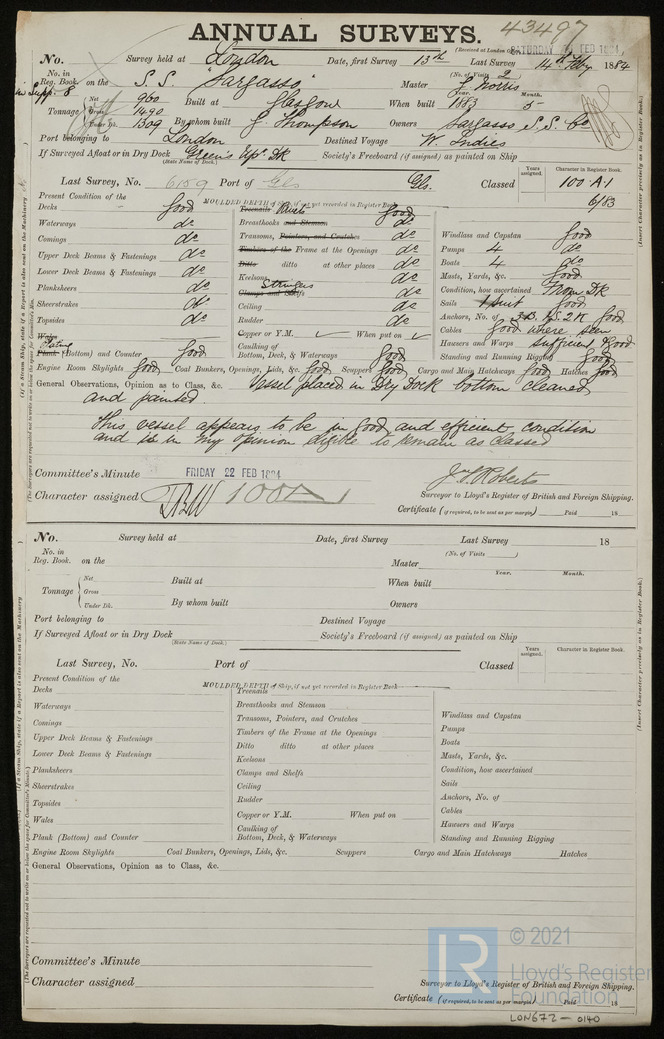 ANNUAL SURVEYS.
43497
(Received at London Office
No. Survey held at London Date, first Survey 13th Last Survey 14th Feby 1884
(No. of Visits 2
No. in Reg. Book. on the S.S. "Sargasso" Master J. Norris
in Supp. 8
Year. Month.
Tonnage Net 960 Built at Glasgow When built 1883 5
Gross 1490
Under Dk. 1309 By whom built J Thompson Owners Sargasso S.S. Co
Port belonging to London Destined Voyage W. Indies
If Surveyed Afloat or in Dry Dock Green's Upr Dk Society's Freeboard (if assigned) as painted on Ship
(State Name of Dock.)
Years assigned. Character in Register Book.
Last Survey, No. 6159 Port of Gls Gls. Classed 100 A.1
6/83
Present Condition of the MOULDED DEPTH of Ship, if not yet recorded in Register Book
Decks good Treenails Rivets good
Waterways do Breasthooks and Stemson do Windlass and Capstan good
Comings do Transoms, Pointers, and Crutches do Pumps 4 do
Upper Deck Beams & Fastenings do Timbers of the Frame at the Openings do Boats 4 do
Lower Deck Beams & Fastenings do Ditto ditto at other places do Masts, Yards, &c. good
Planksheers do Keelsons do Condition, how ascertained From Dk
Sheerstrakes do Clamps and Shelfs Stringers do Sails 1 suit good
Topsides do Ceiling do Anchors, No. of 3 B. 1 S. 2 K good
Wales Rudder do Cables good where seen
Plating Copper or Y.M. When put on Hawsers and Warps sufficient & good
Plank (Bottom) and Counter good Caulking of Bottom, Deck, & Waterways good Standing and Running Rigging good
Engine Room Skylights good Coal Bunkers, Openings, Lids, &c. good Scuppers good Cargo and Main Hatchways good Hatches good
General Observations, Opinion as to Class, &c. Vessel placed in Dry Dock bottom cleaned
and painted
This vessel appears to be in good and efficient condition
and is in my opinion eligible to remain as classed
Committee's Minute FRIDAY 22 FEB 1884
Character assigned 100A1
Roberts
Surveyor to Lloyd's Register of British and Foreign Shipping.
Certificate (if required, to be sent as per margin) Paid 18
No. Survey held at Date, first Survey Last Survey 18
(No. of Visits )
No. in Reg. Book. on the Master
Year. Month.
Tonnage Net Built at When built
Gross
Under Dk. By whom built Owners
Port belonging to Destined Voyage
If Surveyed Afloat or in Dry Dock Society's Freeboard (if assigned) as painted on Ship
(State Name of Dock.)
Years assigned. Character in Register Book.
Last Survey, No. Port of Classed
Present Condition of the MOULDED DEPTH of Ship, if not yet recorded in Register Book
Decks Treenails
Waterways Breasthooks and Stemson Windlass and Capstan
Comings Transoms, Pointers, and Crutches Pumps
Upper Deck Beams & Fastenings Timbers of the Frame at the Openings Boats
Lower Deck Beams & Fastenings Ditto ditto at other places Masts, Yards, &c.
Planksheers Keelsons Condition, how ascertained
Sheerstrakes Clamps and Shelfs Sails
Topsides Ceiling Anchors, No. of
Wales Rudder Cables
Copper or Y.M. When put on Hawsers and Warps
Plank (Bottom) and Counter Caulking of Bottom, Deck, & Waterways Standing and Running Rigging
Engine Room Skylights Coal Bunkers, Openings, Lids, &c. Scuppers Cargo and Main Hatchways Hatches
General Observations, Opinion as to Class, &c.
Committee's Minute
Character assigned
Surveyor to Lloyd's Register of British and Foreign Shipping.
Certificate (if required, to be sent as per margin) Paid 18
LR © 2021
Lloyd's Register
Foundation
LON672-0140
(Insert Character precisely as in Register Book.)
(Insert Character precisely as in Register Book.)